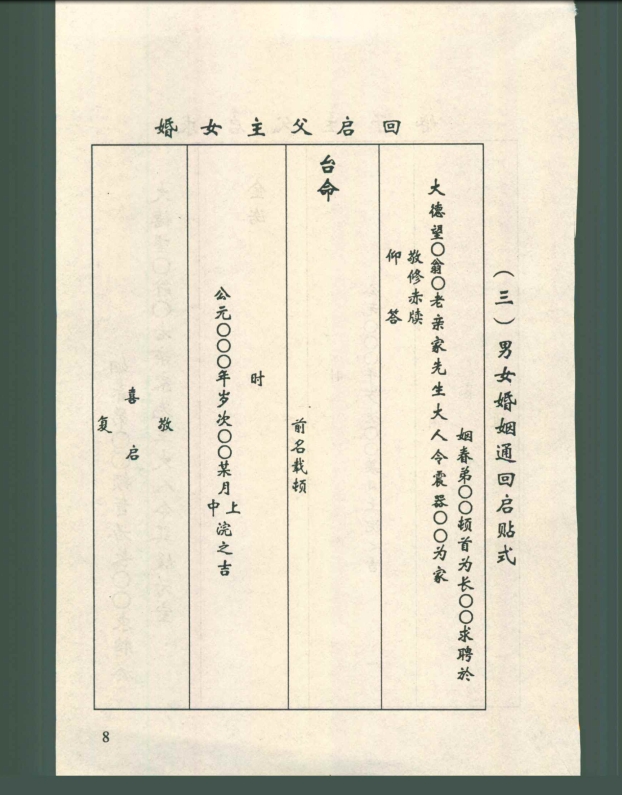 （三）男女婚姻通回启贴式
回启父主女婚
姻眷弟〇〇顿首为长〇〇求聘於
大德望〇翁〇老亲家先生大人令震器〇〇为家
敬修赤牍
仰答
台命
前名载顿
时
公元〇〇〇年岁次〇〇某月上中浣之吉
敬
喜启
复
8